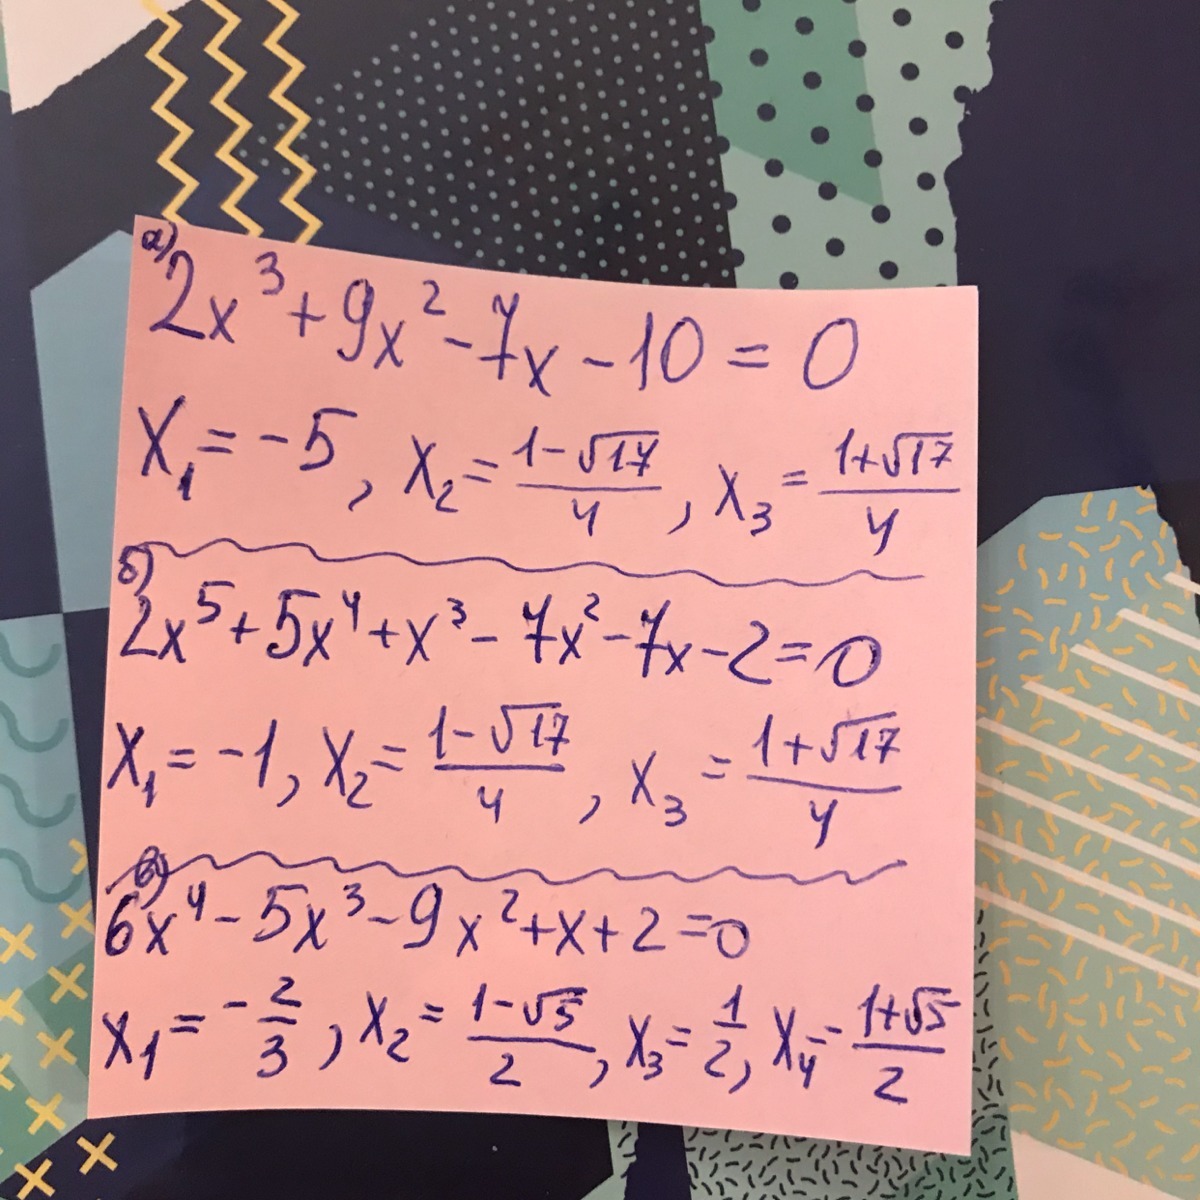 а)
2x³ + 9x² - 7x - 10 = 0
x₁ = -5, x₂ = (1-√17)/4, x₃ = (1+√17)/4
б)
2x⁵ + 5x⁴ + x³ - 7x² - 7x - 2 = 0
x₁ = -1, x₂ = (1-√17)/4, x₃ = (1+√17)/4
в)
6x⁴ - 5x³ - 9x² + x + 2 = 0
x₁ = -2/3, x₂ = (1-√5)/2, x₃ = 1/2, x₄ = (1+√5)/2